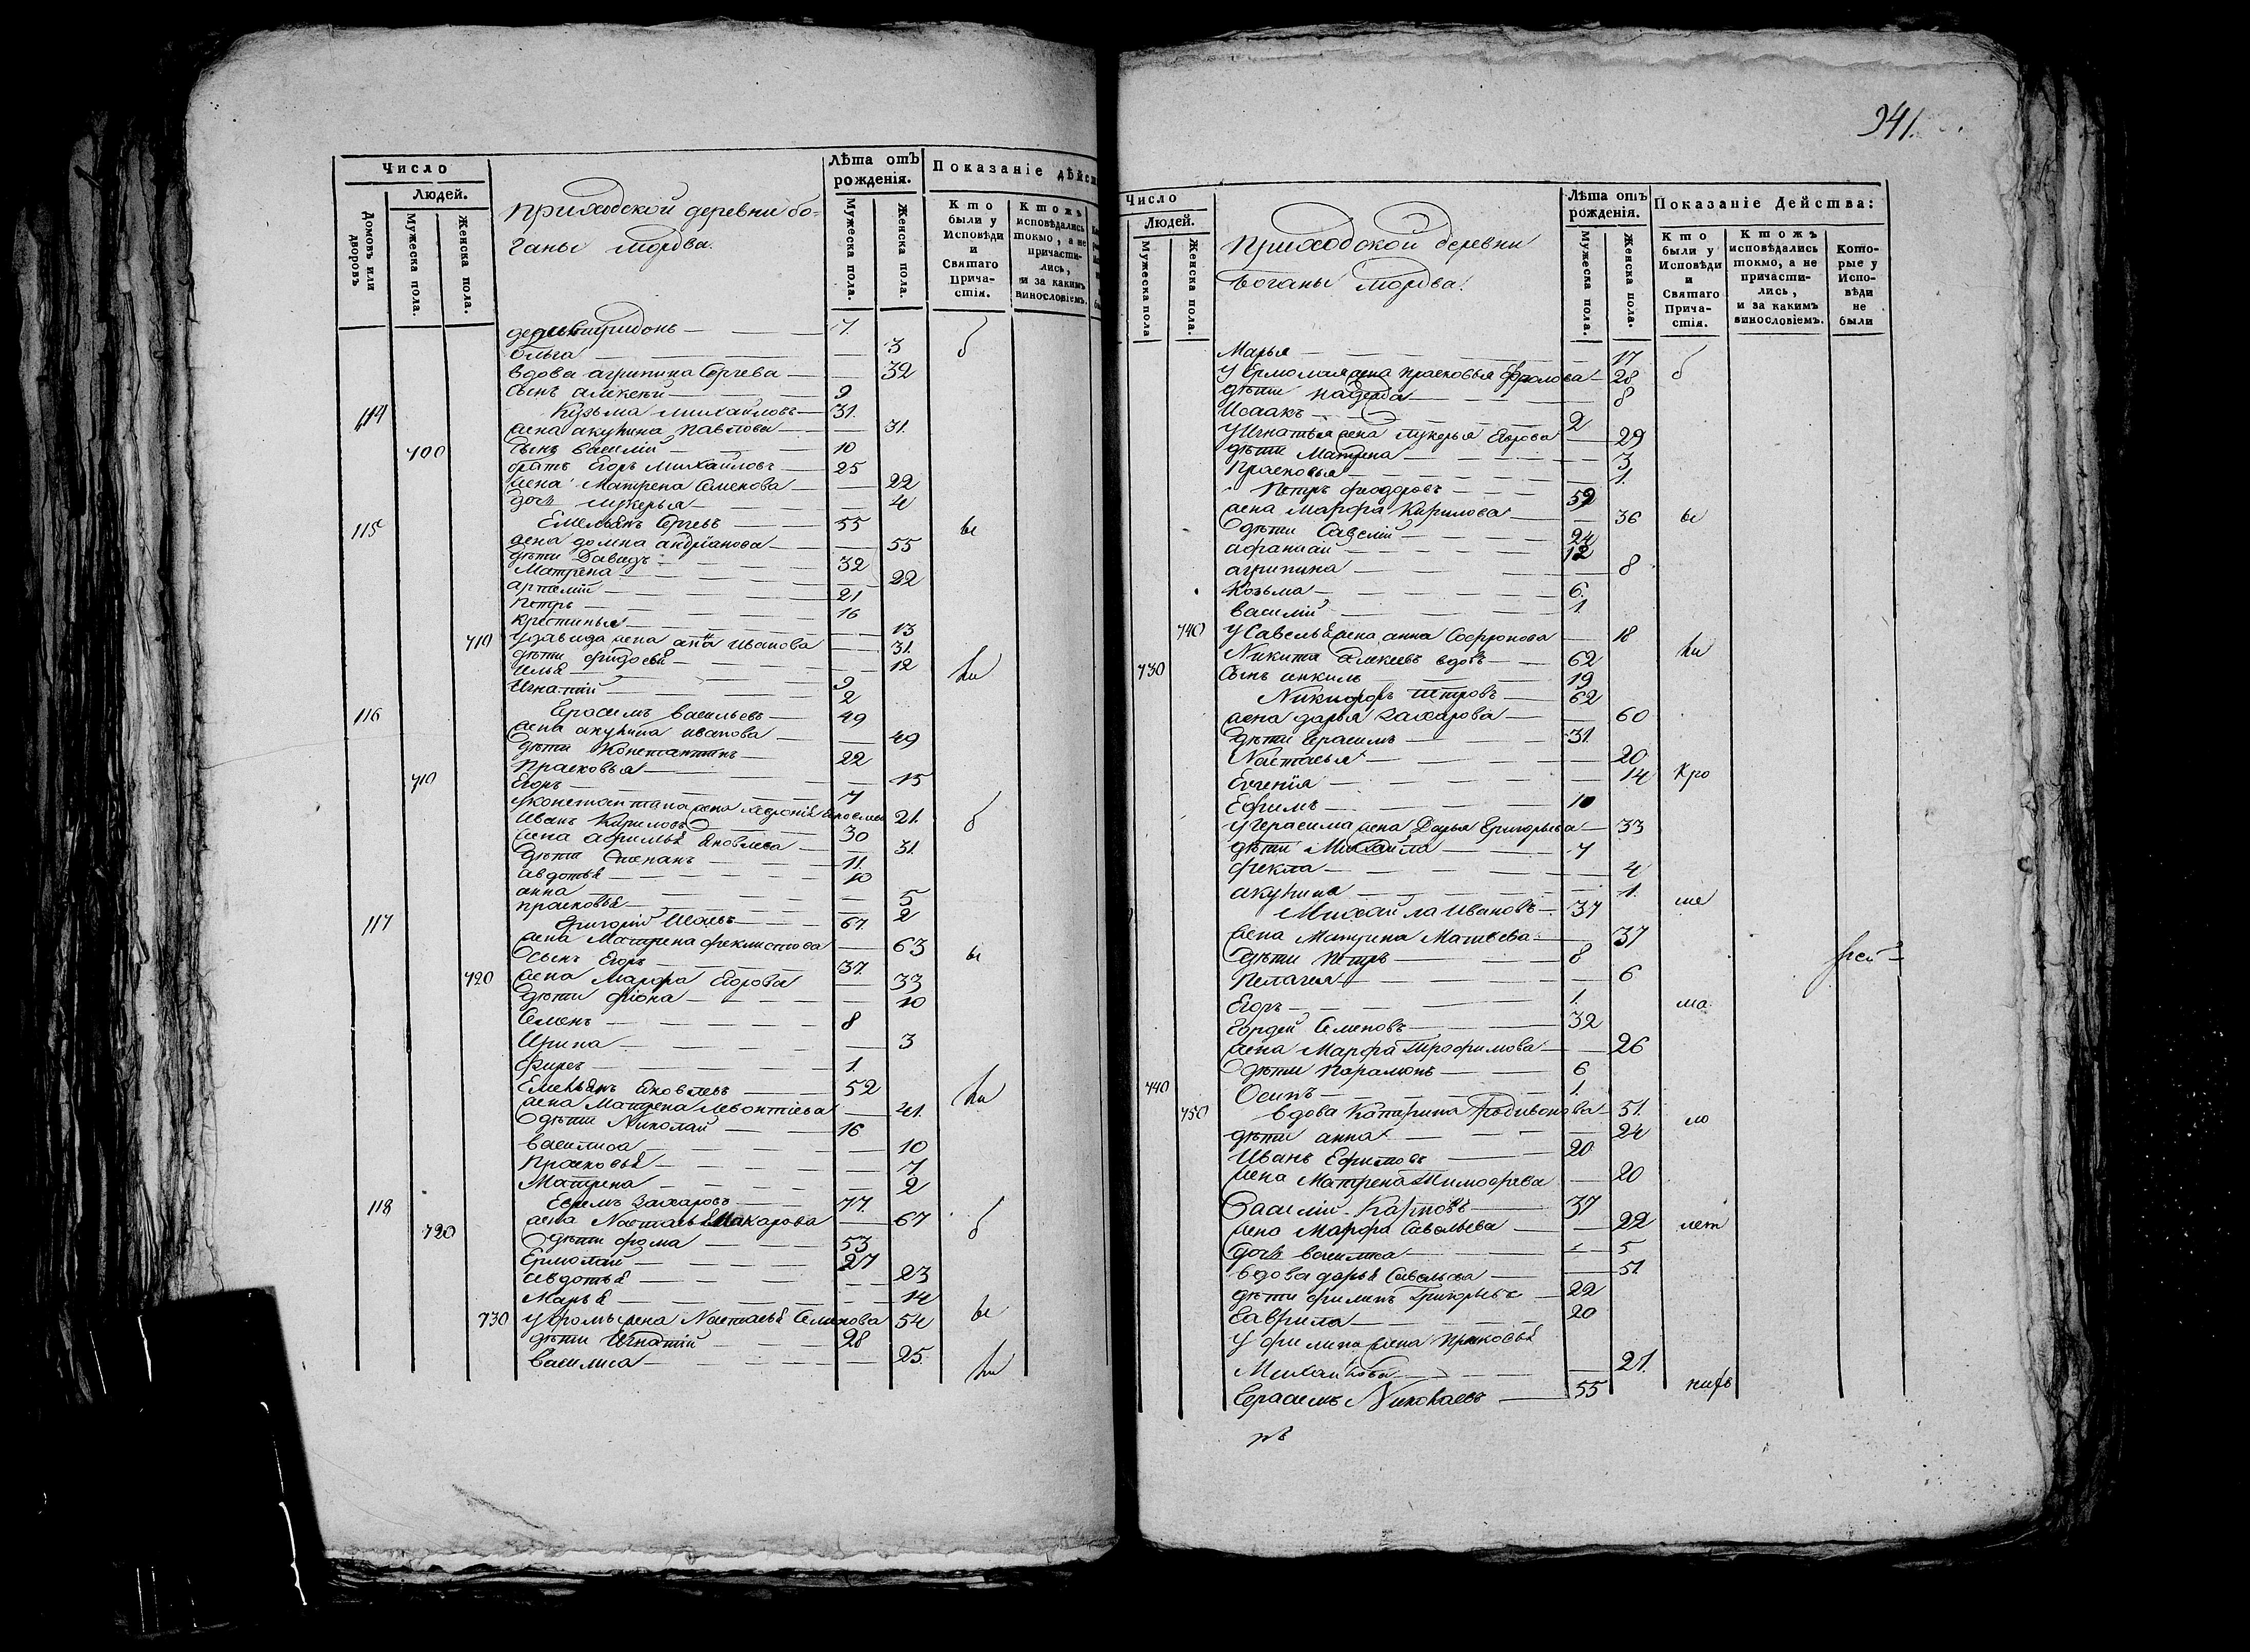 Число
Людей.
Домовъ или дворовъ
Мужеска пола.
Женска пола.
приходской деревни бо-
ганы мордва.
Лѣта отъ рожденія.
Мужеска пола.
Женска пола.
Показаніе дѣйст
Кто были у Исповѣди и Святаго Прича-стія.
Ктожъ исповѣдались токмо, а не причасти-лись, и за какимъ винословіемъ.
7.
Ольга 3 б
вдова агрипина Сергева 32
сынъ алексѣй 9
114 Кузьма михайловъ 31.
жена акулина павлова 31.
700 сынъ василій 10
братъ Егоръ Михайловъ 25
жена Матрена Семенова 22
дочь лукерья 4
115 Емельянъ Сергевъ 55 вы
жена домна андрianова 55
дѣти Давидъ 32
Матрена 22
артемій 21
Петръ 16
крестинья 13
710 у давида жена анна иванова 31.
дѣти 12
Илья 9
Игнатій 2
116 Герасимъ васильевъ 49
жена акулина иванова 49
дѣти Константинъ 22
Прасковья 15
710 Егоръ 7
у константина жена 21.
Иванъ Кириловъ 30 б
жена Яковлева 31.
дѣти Степанъ 11.
авдотья 10
анна 5
прасковья 2
117 Григорій 67.
жена Матрена феклистова 63
сынъ Егоръ 37. вы
720 жена Марфа Егорова 33
дѣти 10
Семенъ 8
Ирина 3
1.
Емельянъ Яковлевъ 52 ли
жена Матрена Левонтіева 41.
дѣти Николай 16
василиса 10
Прасковья 7
Матрена 2
118 Ефремъ Захаровъ 77.
жена Настасья Макарова 67 б
720 дѣти фома 53
Ермолай 27
авдотья 23
Марья 14
730 у фомы жена Настасья Семенова 54 вы
дѣти Игнатій 28
василиса 25. ли
941.
Число
Людей.
Мужеска пола
Женска пола.
приходской деревни
боганы мордва.
Лѣта отъ рожденія.
Мужеска пола.
Женска пола.
Показаніе Действа:
Кто были у Исповѣди и Святаго Прича-стія.
Ктожъ исповѣдались токмо, а не причасти-лись, и за какимъ винословіемъ.
Кото-рые у Испо-вѣди не были
Марья 17 б
у Ермолая жена прасковья фролова 28
дѣти надежда 8
Исаакъ 2
у Игнатья жена лукерья Егорова 29
дѣти Матрена 3
Прасковья 1.
Петръ феодоровъ 59
жена Марфа Кирилова 36 вы
дѣти Савелій 24
афанасій 12
агрипина 8
Козьма 6.
василій 1.
740 у Савелья жена анна Софронова 18 ли
730 Никита алексеевъ вдовъ 62
сынъ 19
Никифоръ Петровъ 62
жена дарья Захарова 60
дѣти Герасимъ 31.
Настасья 20
Евгенія 14 Кро
Ефимъ 10
у герасима жена Дарья Григорьева 33
дѣти Михайла 7
фекла 4
акулина 1. ме
Михайла Ивановъ 37
жена Матрена Матвеева 37
дѣти Петръ 8
Пелагея 6
Егоръ 1. ма
Гордей Семеновъ 32
жена Марфа Трофимова 26
дѣти Парамонъ 6
740 Осипъ 1.
750 вдова Катерина Родивонова 51.
дѣти анна 24
Иванъ Ефимовъ 20
жена Матрена Тимофеева 20
василій Карповъ 37
жена Марфа Савельева 22 лет
дочь василиса 5
вдова дарья Савельева 51
дѣти филипъ Григорьевъ 22
Гаврила 20
у филипа жена Прасковья
Михайлова 21.
Герасимъ Николаевъ 55